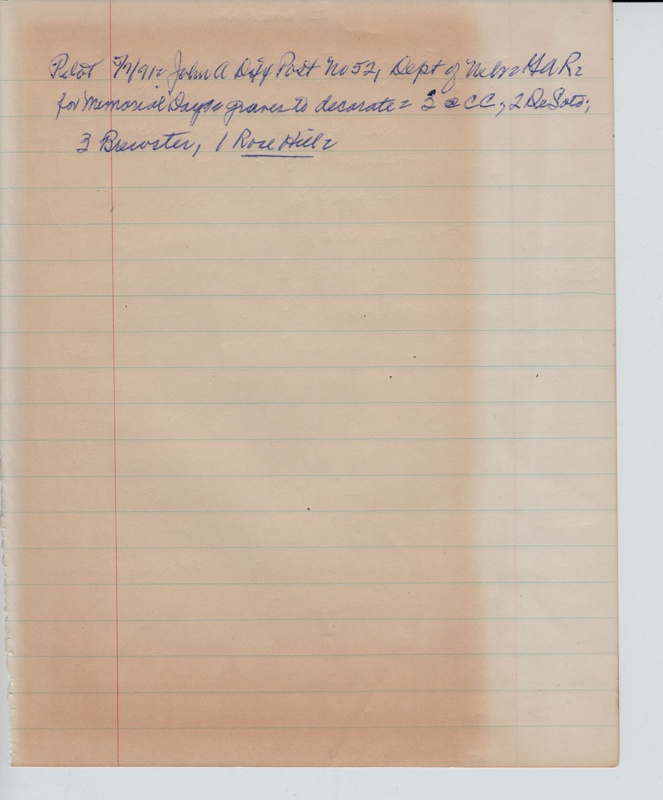 Pilot 5/7/91= John A Dix Post No 52, Dept of Nebr= GAR=
for Memorial Day= graves to decorate= 3 @ CC, 2 DeSoto,
3 Brewster, 1 Rose Hill=